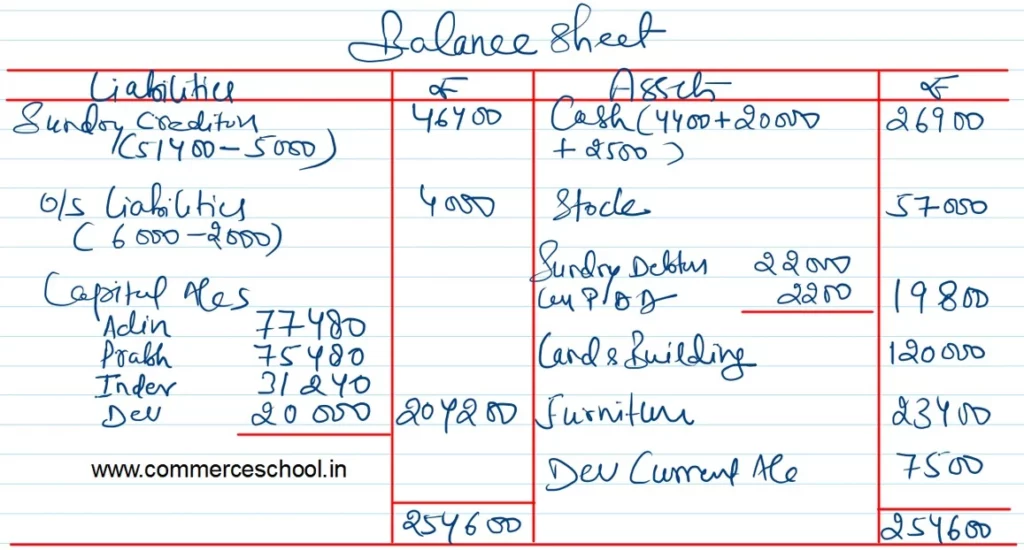 Balance Sheet
Liabilities ₹ Assets ₹
Sundry Creditors 46400 Cash (4400+20000 26900
(51400-5000) + 2500)
O/s Liabilities 4000 Stock 57000
(6000-2000)
Sundry Debtors 22000
Capital A/cs Less P/BD 2200 19800
Adin 77480
Prabh 75480 Land & Building 120000
Inder 31240
Dev 20000 204200 Furniture 23400
www.commerceschool.in Dev Current A/c 7500
254600 254600